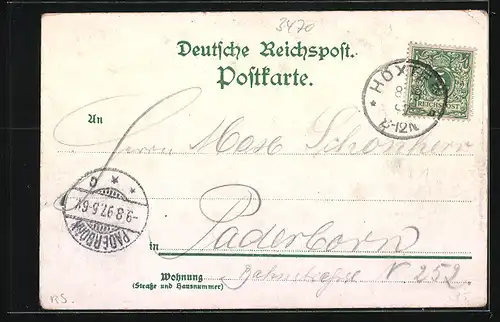 3470
Deutsche Reichspost.
Postkarte.
HÖXTER
12-12N
REICHSPOST
An
Herrn Max Schönherr
PADERBORN
-9.8.97.6-
C
in
Paderborn
Wohnung
(Straße und Hausnummer)
Bahnstraße N 252.